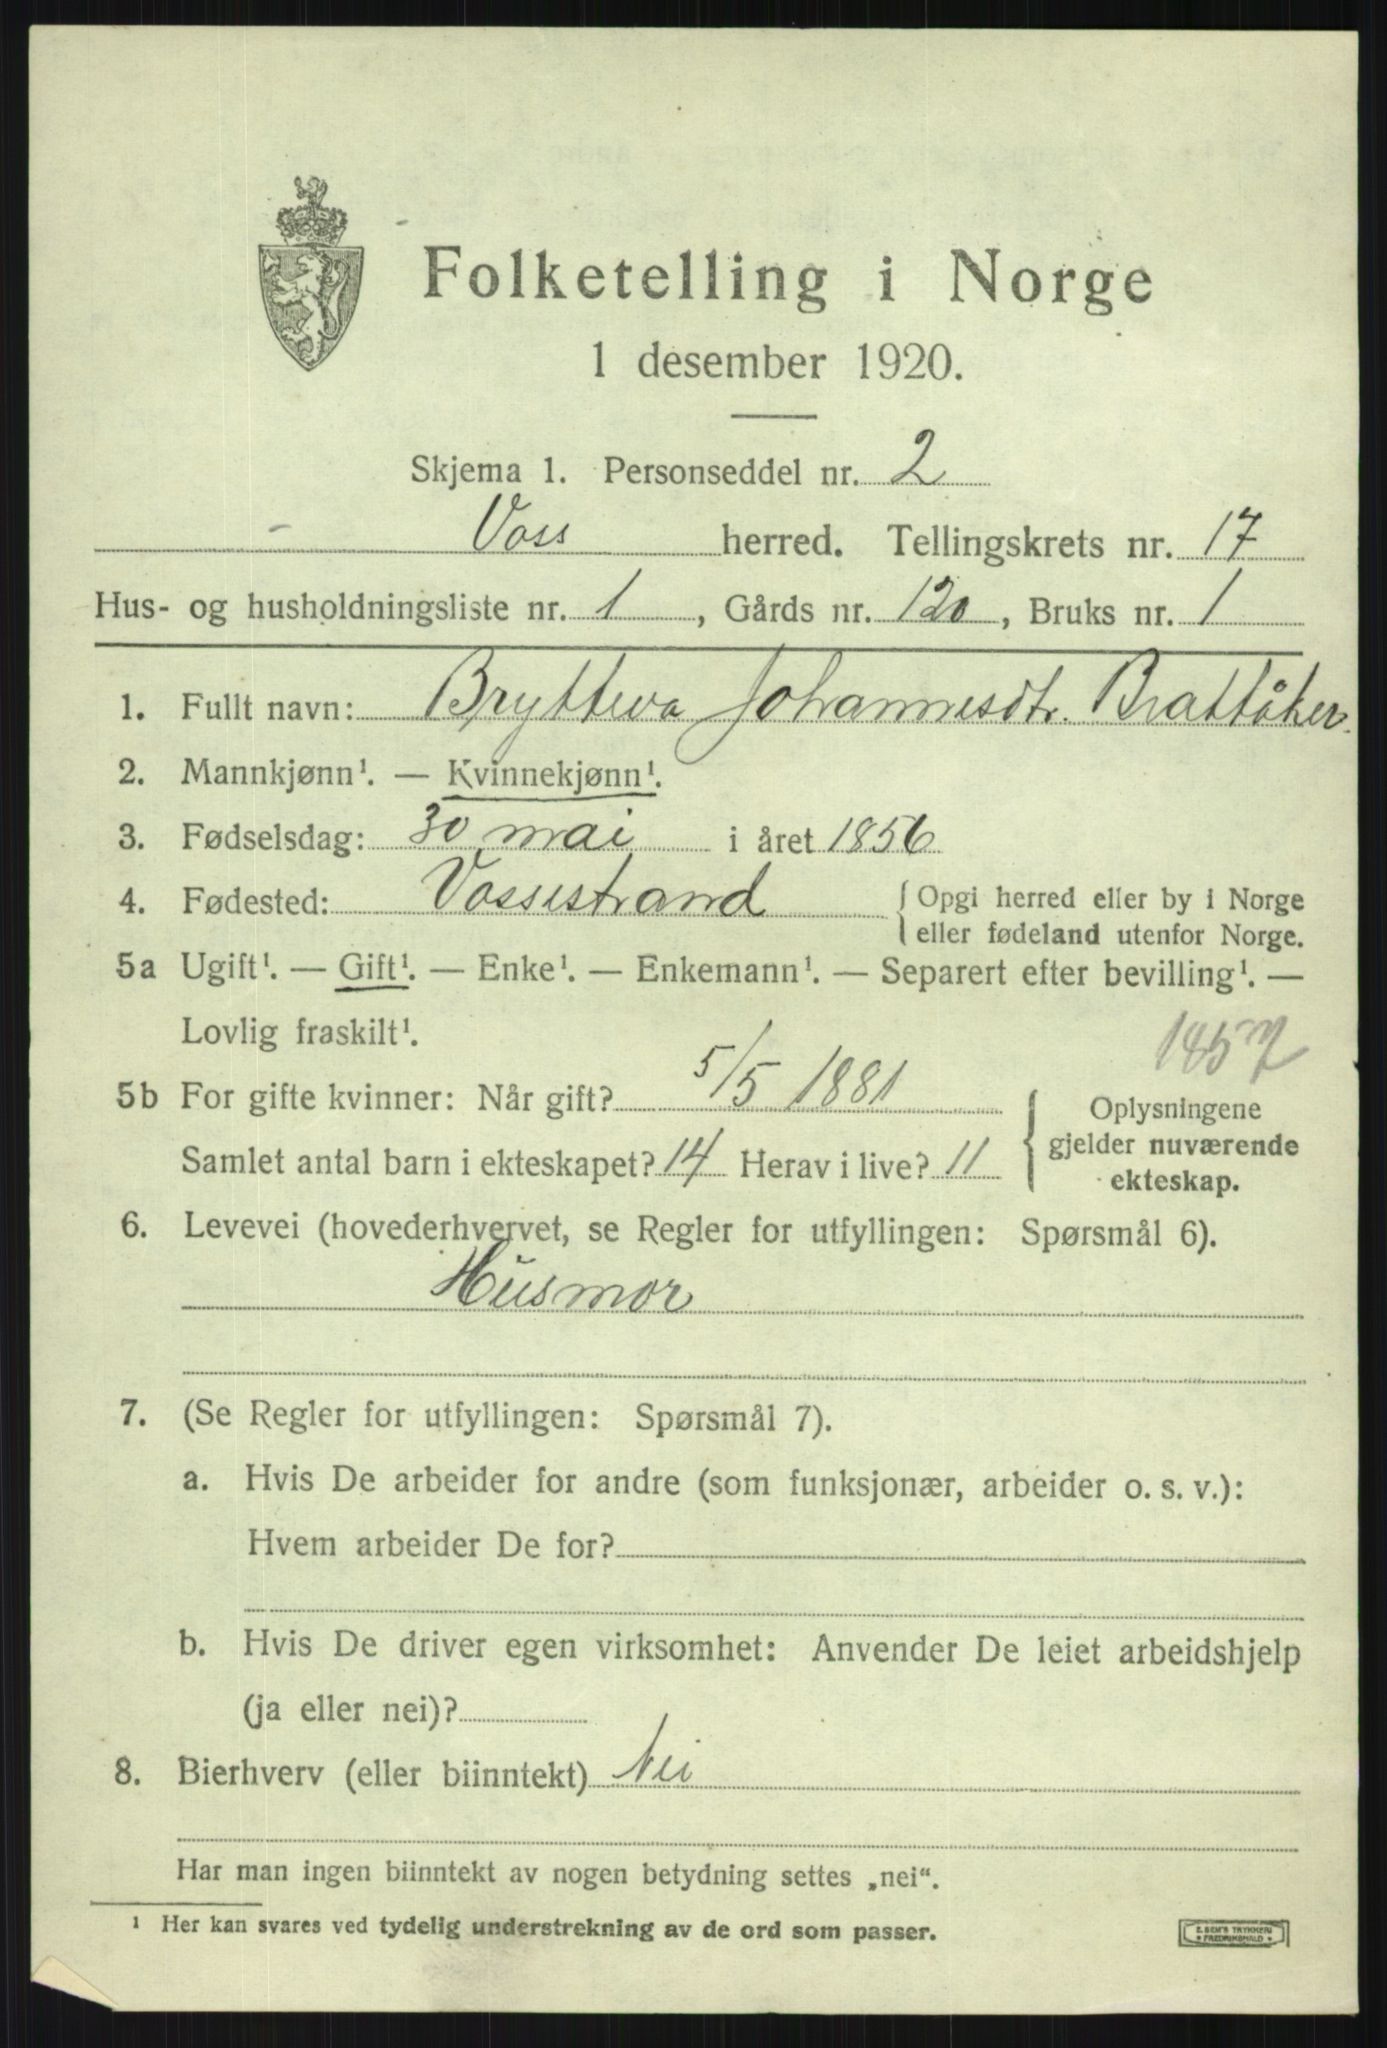 Folketelling i Norge
1 desember 1920.
Skjema 1. Personseddel nr. 2
Voss herred. Tellingskrets nr. 17
Hus- og husholdningsliste nr. 1, Gårds nr. 120, Bruks nr. 1
1. Fullt navn: Brytteva Johannesdtr. Brattåker
2. Mannkjønn¹. — Kvinnekjønn¹.
3. Fødselsdag: 30 mai i året 1856
4. Fødested: Vossestrand { Opgi herred eller by i Norge
eller fødeland utenfor Norge.
5a Ugift¹. — Gift¹. — Enke¹. — Enkemann¹. — Separert efter bevilling¹. —
Lovlig fraskilt¹.
1857
5b For gifte kvinner: Når gift? 5/5 1881
Samlet antal barn i ekteskapet? 14 Herav i live? 11
{ Oplysningene
gjelder nuværende
ekteskap.
6. Levevei (hovederhvervet, se Regler for utfyllingen: Spørsmål 6).
Husmor
7. (Se Regler for utfyllingen: Spørsmål 7).
a. Hvis De arbeider for andre (som funksjonær, arbeider o. s. v.):
Hvem arbeider De for?
b. Hvis De driver egen virksomhet: Anvender De leiet arbeidshjelp
(ja eller nei)?
8. Bierhverv (eller biinntekt) Nei
Har man ingen biinntekt av nogen betydning settes „nei“.
¹ Her kan svares ved tydelig understrekning av de ord som passer.
E. SEM'S TRYKKERI
• FREDRIKSHALD •